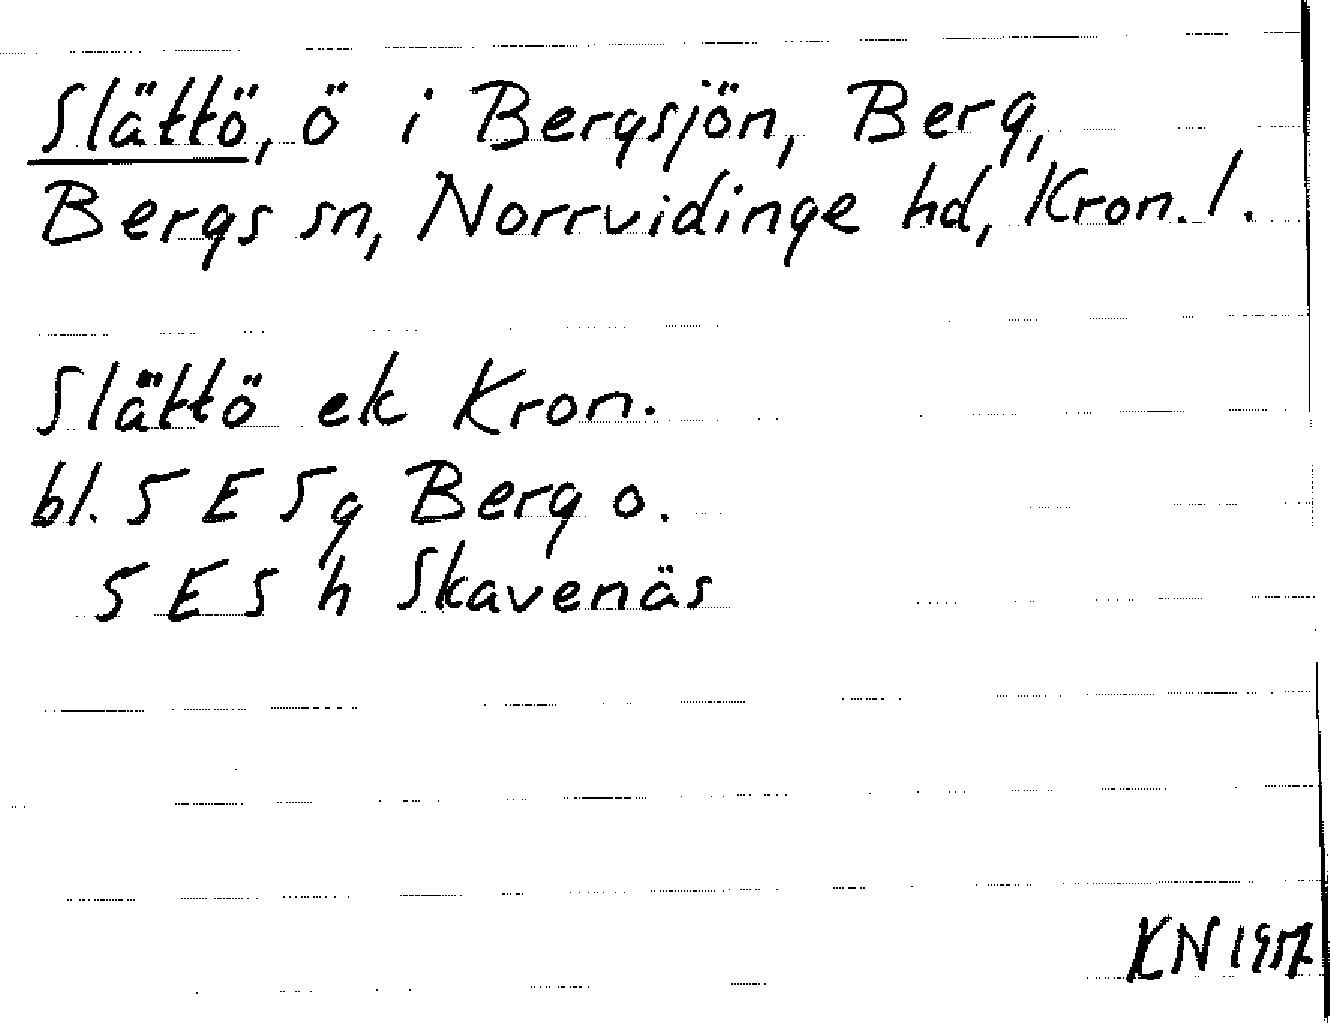 Slättö, ö i Bergsjön, Berg,
Bergs sn, Norrvidinge hd, Kron. l.
Slättö ek Kron.
bl. 5 E 5 g Berg o.
5 E 5 h Skavenäs
KN 1957